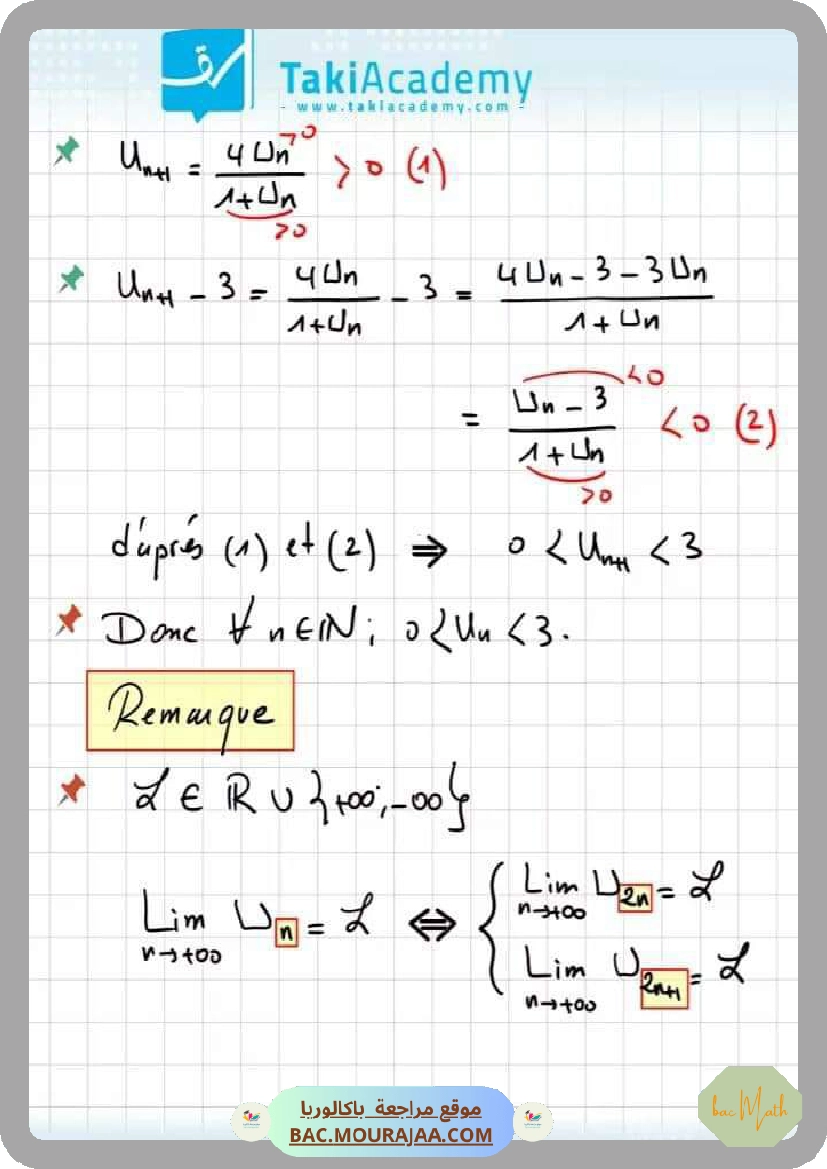 سرق
TakiAcademy
- www.takiacademy.com -
U_{n+1} = \frac{4U_n}{1+U_n} > 0 (1)
>0
>0
U_{n+1} - 3 = \frac{4U_n}{1+U_n} - 3 = \frac{4U_n - 3 - 3U_n}{1+U_n}
= \frac{U_n - 3}{1+U_n} < 0 (2)
<0
>0
d'après (1) et (2) ⇒ 0 < U_{n+1} < 3
Donc ∀ n ∈ ℕ ; 0 < U_n < 3.
Remarque
ℒ ∈ ℝ ∪ {+∞; -∞}
Lim_{n→+∞} U_n = ℒ ⇔ { Lim_{n→+∞} U_{2n} = ℒ
Lim_{n→+∞} U_{2n+1} = ℒ
موقع مراجعة باكالوريا
BAC.MOURAJAA.COM
bac Math